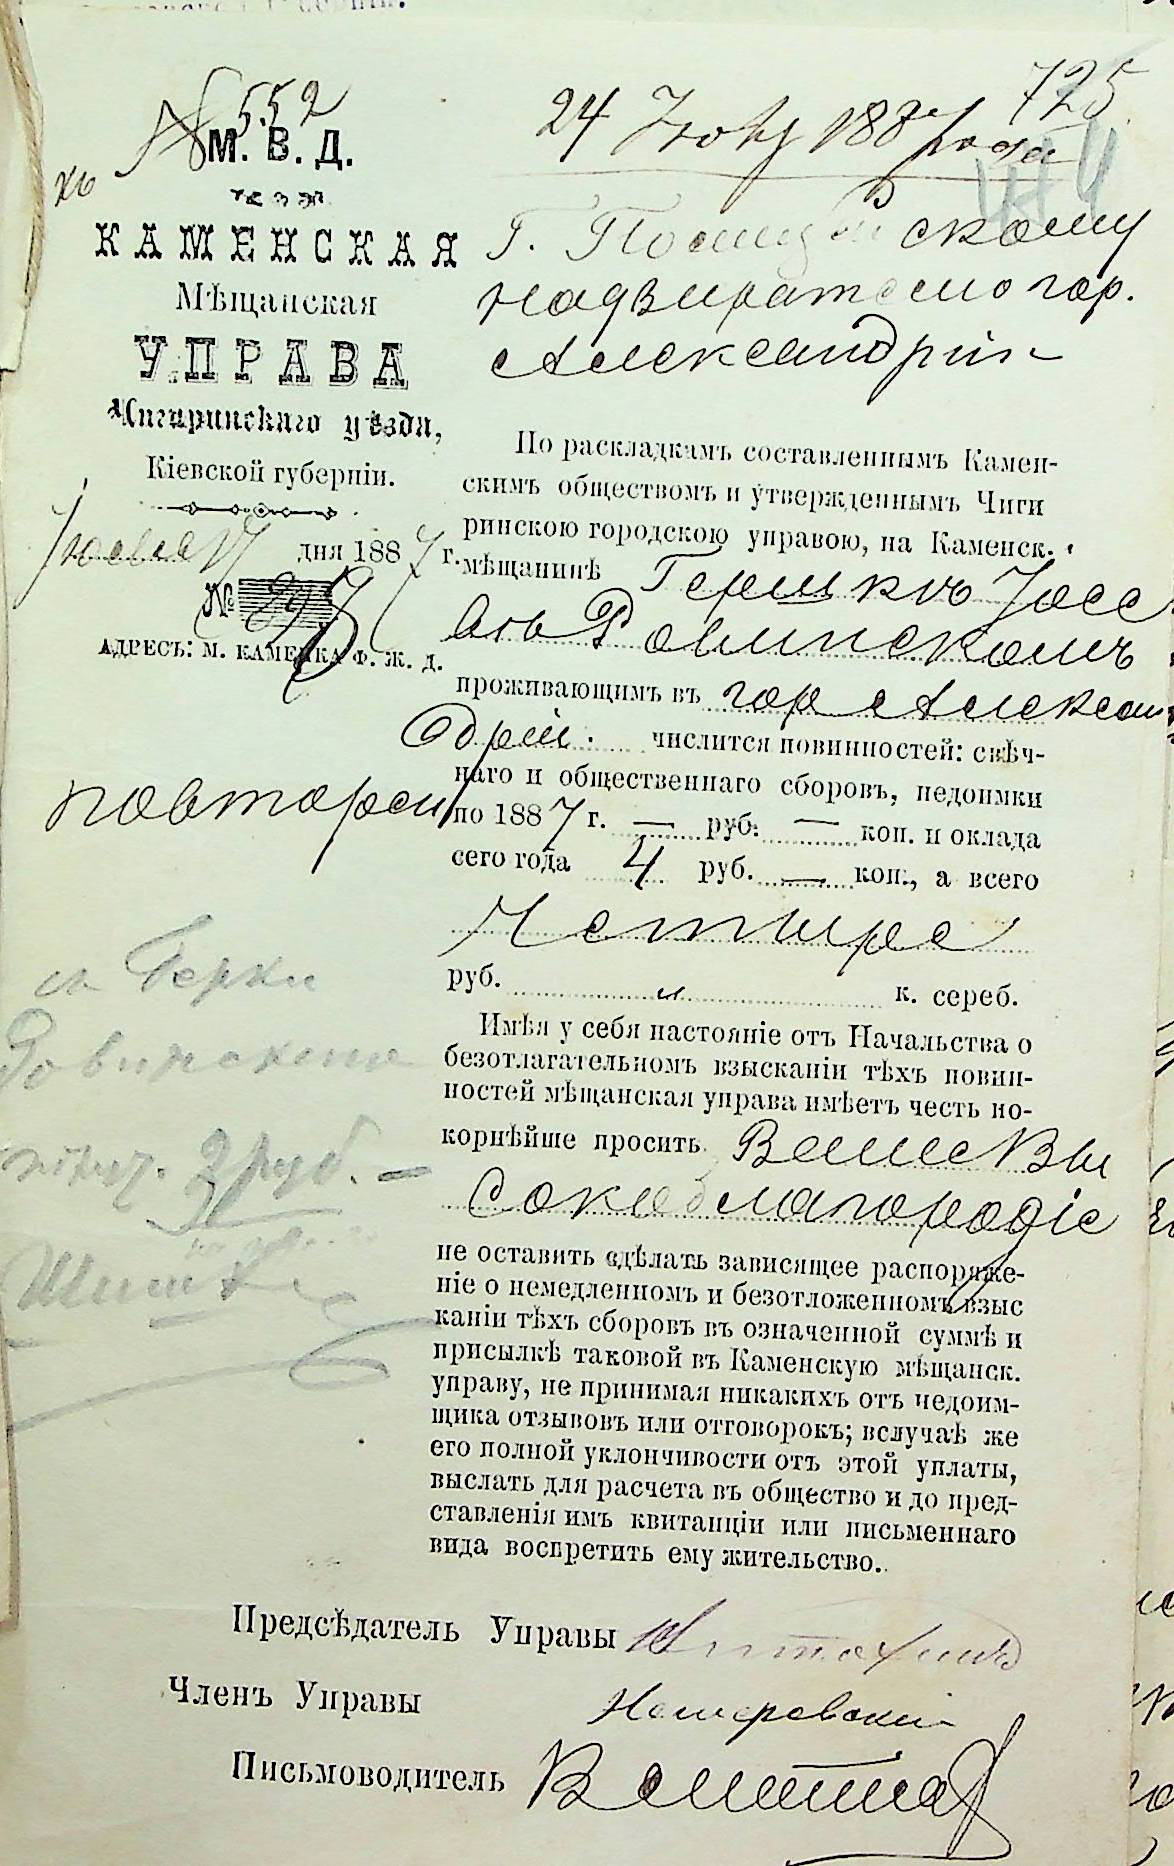 № 552
М. В. Д.
КАМЕНСКАЯ
Мѣщанская
УПРАВА
Чигиринскаго уѣзда,
Кіевской губерніи.
дня 1887 г.
№
АДРЕСЪ: М. КАМЕНКА Ф. Ж. Д.
725
24 1887 года
Г. Полицейскому
надзирателю гор.
Александріи
По раскладкамъ составленнымъ Камен-
скимъ обществомъ и утвержденнымъ Чиги
ринскою городскою управою, на Каменск.
мѣщанинѣ Гершкѣ Иосе
Ровинскомъ
проживающимъ въ гор Алексан
дріи. числится повинностей: свѣч-
наго и общественнаго сборовъ, недоимки
по 1887 г. — руб. — коп. и оклада
сего года 4 руб. — коп., а всего
Четыре
руб. к. сереб.
Имѣя у себя настояніе отъ Начальства о
безотлагательномъ взысканіи тѣхъ повин-
ностей мѣщанская управа имѣетъ честь по-
корнѣйше просить Ваше Вы
сокоблагородіе
не оставить сдѣлать зависящее распоряже-
ніе о немедленномъ и безотложенномъ взыс
каніи тѣхъ сборовъ въ означенной суммѣ и
присылкѣ таковой въ Каменскую мѣщанск.
управу, не принимая никакихъ отъ недоим-
щика отзывовъ или отговорокъ; вслучаѣ же
его полной уклончивости отъ этой уплаты,
выслать для расчета въ общество и до пред-
ставленія имъ квитанціи или письменнаго
вида воспретить ему жительство.
съ Герки
Ровинскаго
3 руб. —
Предсѣдатель Управы
Членъ Управы
Письмоводитель